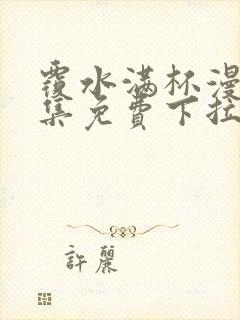 覆水满杯漫
集免费下拉
許麗